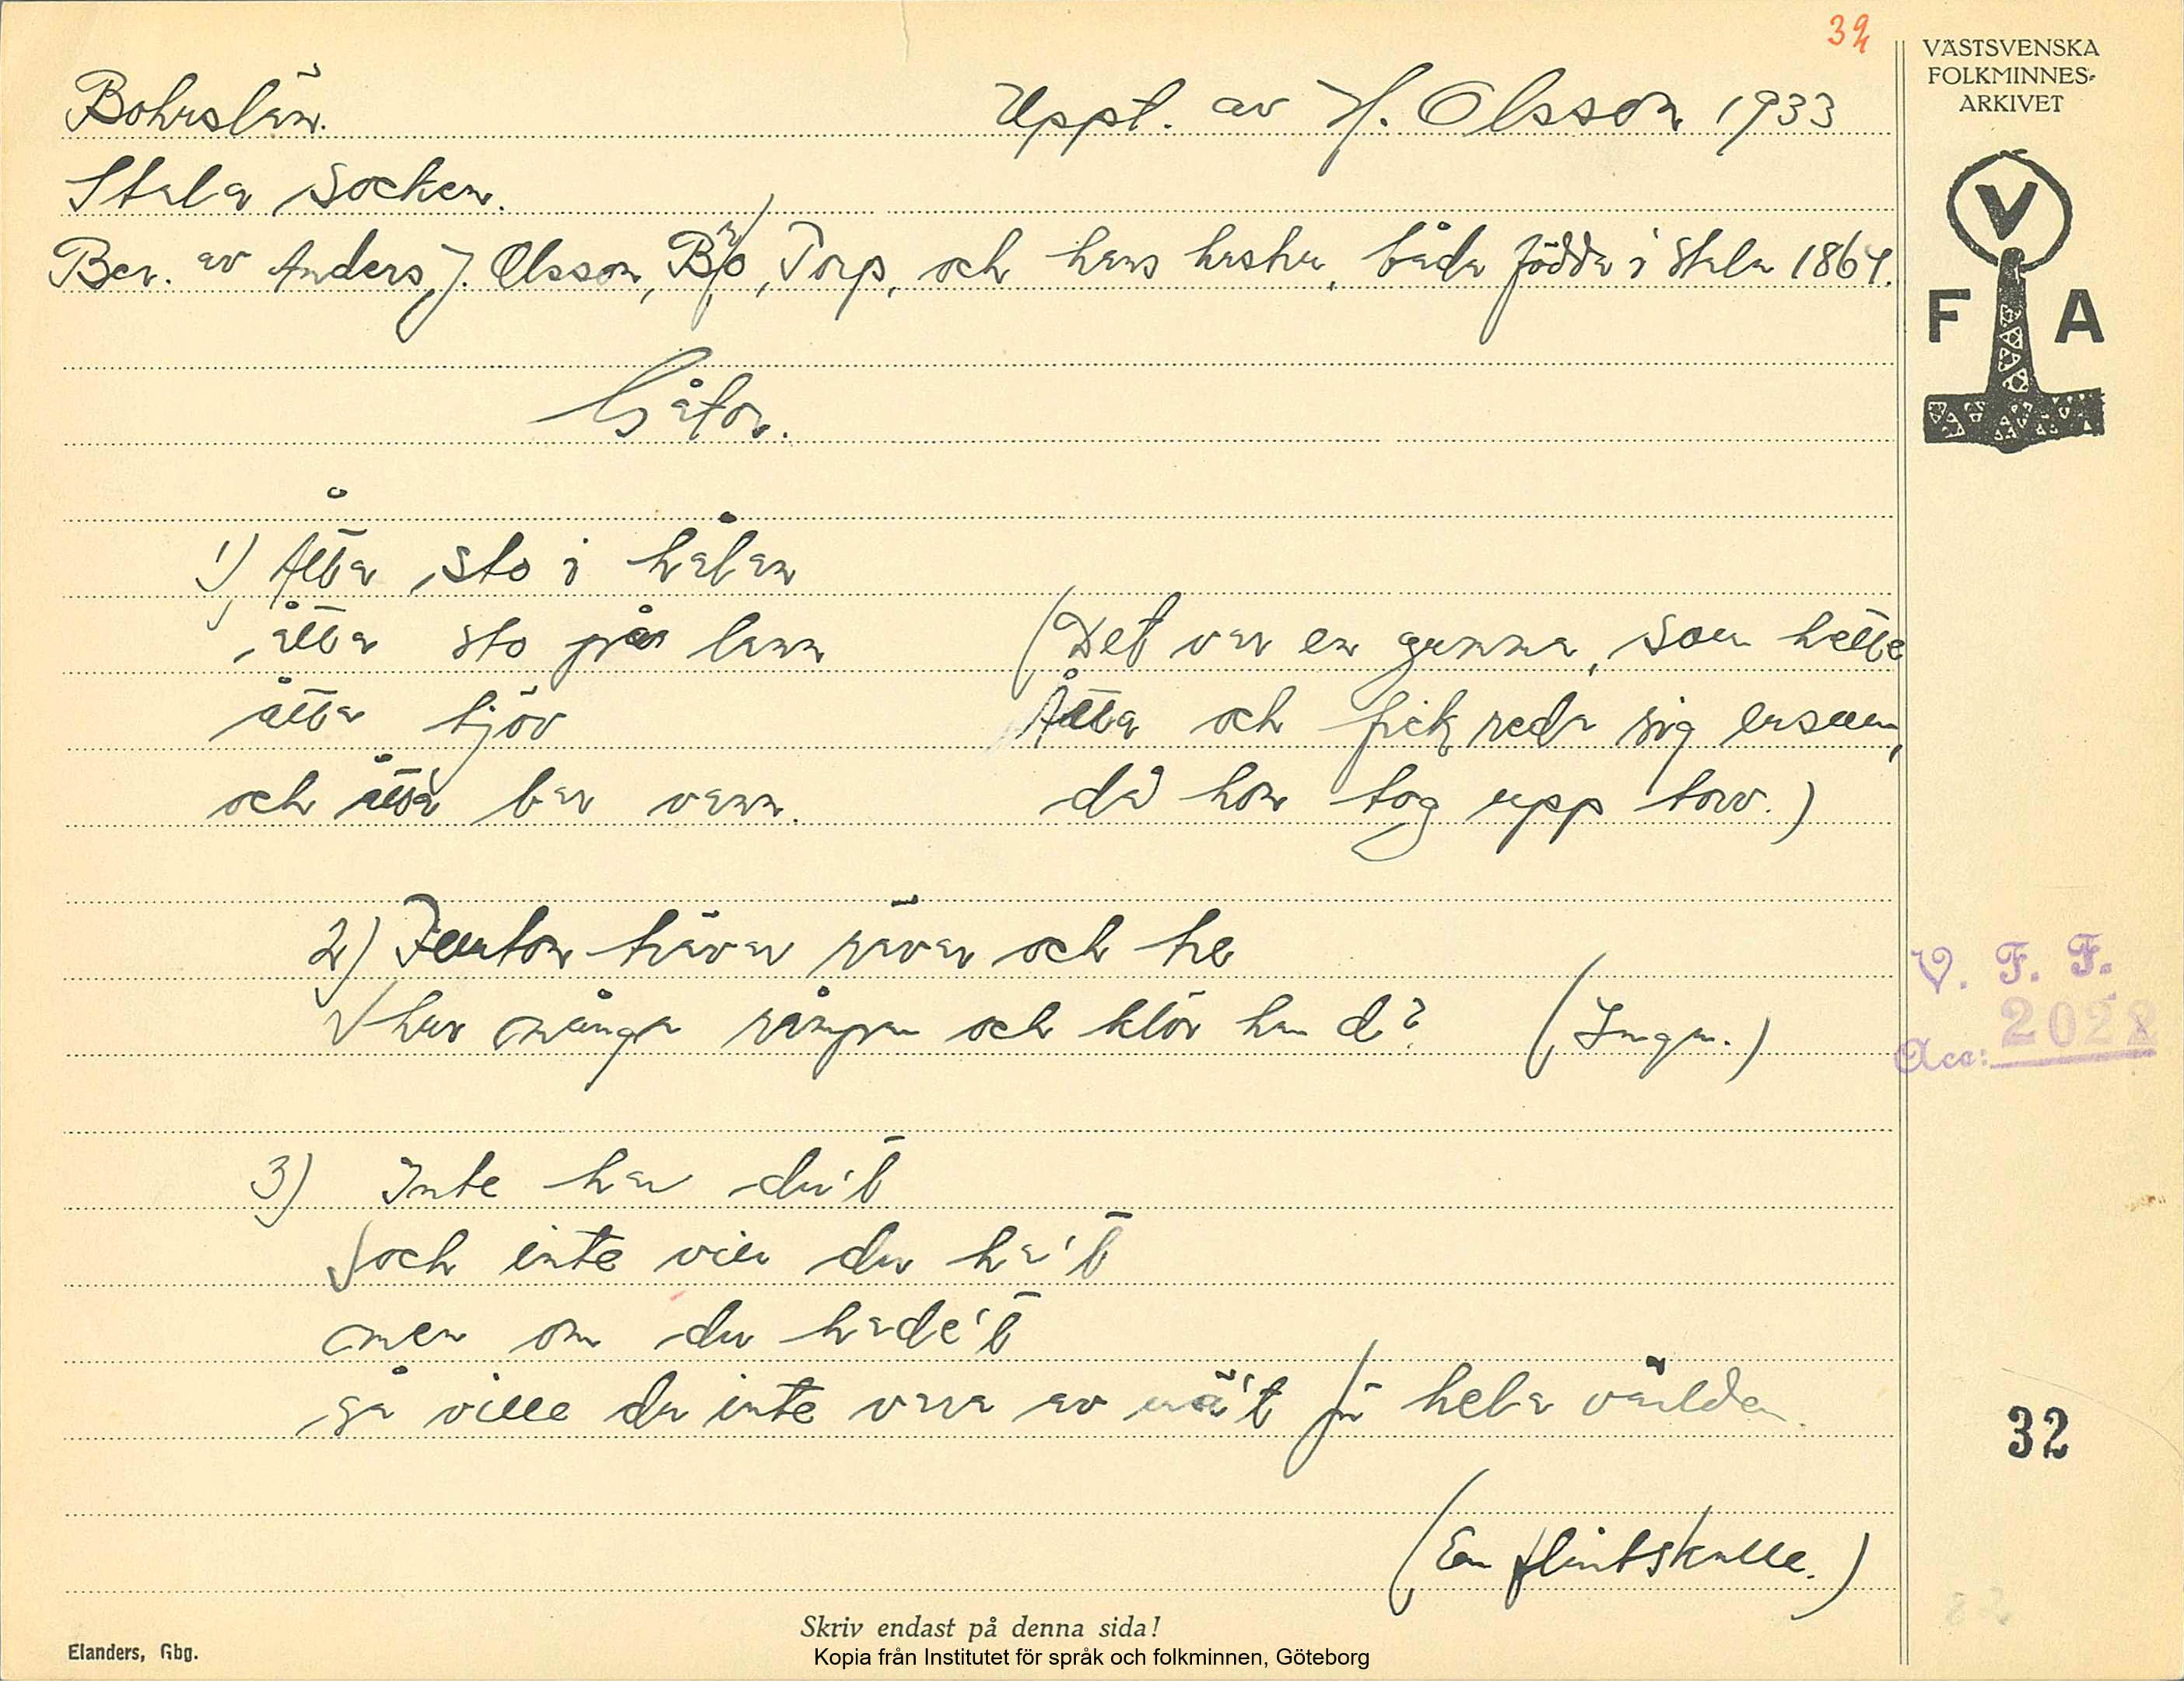 32
VÄSTSVENSKA
FOLKMINNES-
ARKIVET
V
F A
Bohuslän. Uppt. av H. Olsson 1933
Stala socken.
Ber. av Anders J. Olsson, Torp, och hans hustru, båda födda i Stala 1864.
Gåtor.
1) Åtta sto i hålan
åtta sto på lann
åtta hjöv
och åtta bar vann.
(Det var en gumma, som hette
Åtta och fick reda sig ensam,
då hon tog upp torv.)
2) Femton trävar rävar och tre
hur många rumpor och klör ha d? (Inga.)
3) Inte har du't
och inte vill du ha't
men om du hade't
så ville du inte vara av mä't för hela världen.
(En flintskalle.)
V. F. F.
Acc: 2022
32
Skriv endast på denna sida!
Elanders, Gbg.
Kopia från Institutet för språk och folkminnen, Göteborg